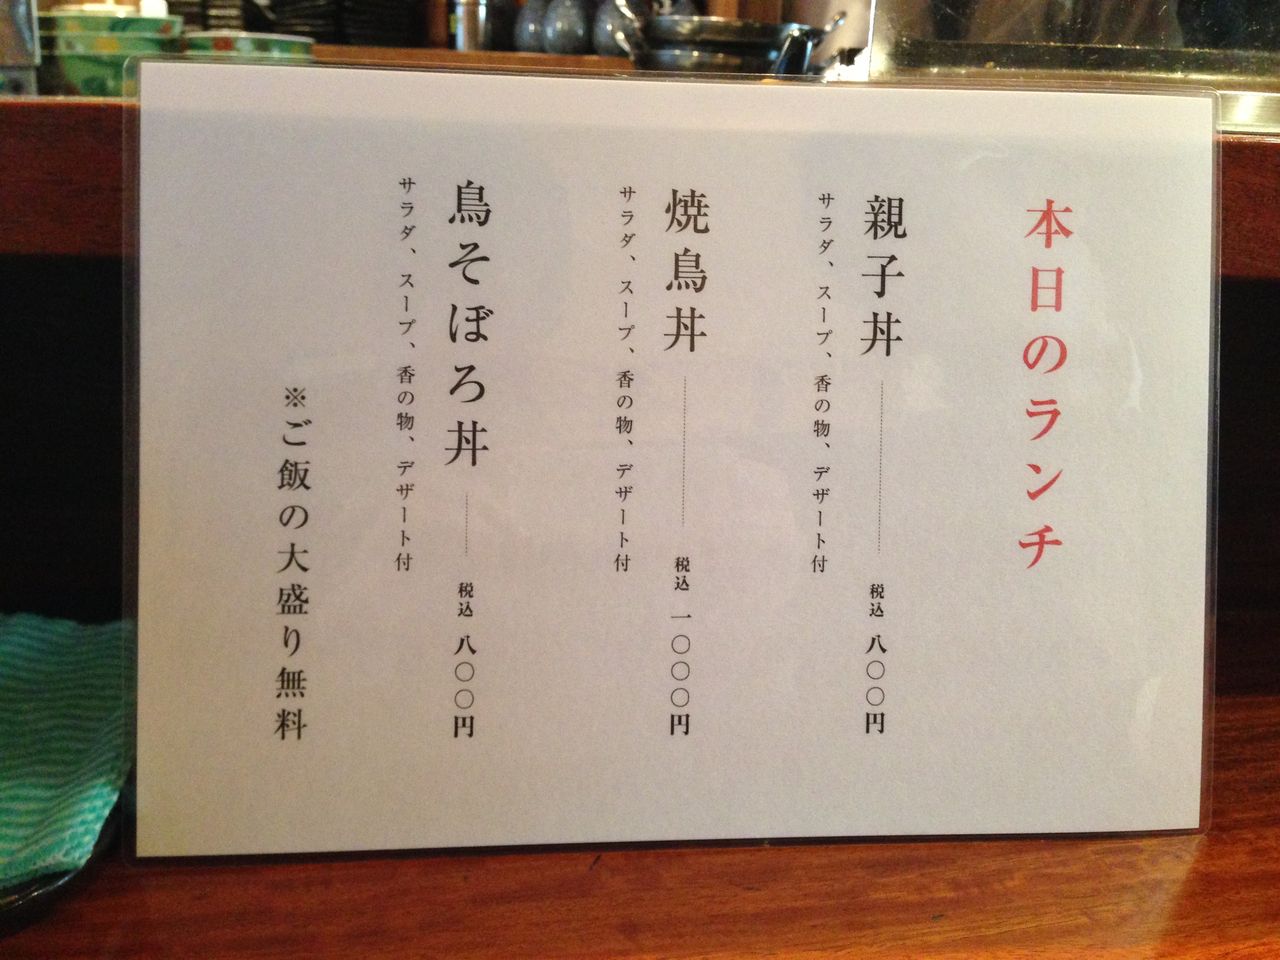 本日のランチ
親子丼 税込 八〇〇円
サラダ、スープ、香の物、デザート付
焼鳥丼 税込 一〇〇〇円
サラダ、スープ、香の物、デザート付
鳥そぼろ丼 税込 八〇〇円
サラダ、スープ、香の物、デザート付
※ご飯の大盛り無料